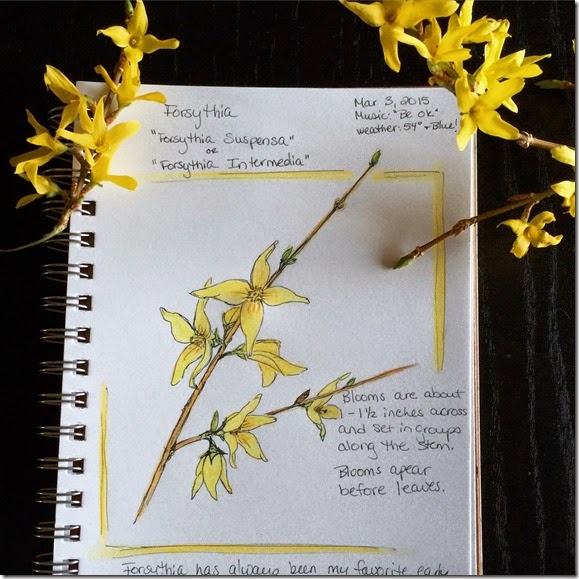 Forsythia
"Forsythia Suspensa"
or
"Forsythia Intermedia"
Mar 3, 2015
Music: "Be ok"
weather: 54° + Blue!
Blooms are about
1 - 1½ inches across
and set in groups
along the stem.
Blooms apear
before leaves.
Forsythia has always been my favorite early